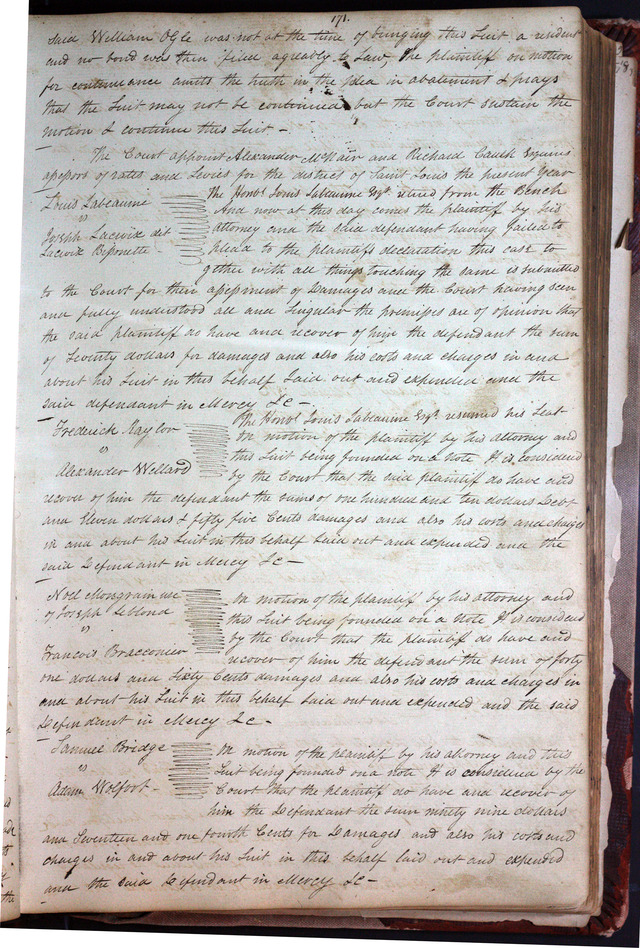 171.
said William Ogle was not at the time of bringing this Suit a resident
and no bond was then filed agreeably to Law, the plaintiff on motion
for continuance the truth in the plea in abatement & prays
that the Suit may not be continued but the Court sustain the
motion & continue this Suit -
The Court appoint Alexander McNair and Richard Caulk Esquires
assessors of rates and Levies for the district of Saint Louis the present Year
Louis Labeaume
vs
Joseph Lacroix dit
Lacroix -
The Honbl Louis Labeaume Esqr. retired from the Bench
And now at this day comes the plaintiff by his
attorney and the said defendant having failed to
plead to the plaintiffs declaration this case to
gether with all things touching the same is submitted
to the Court for their assessment of Damages and the Court having seen
and fully understood all and Singular the premises are of opinion that
the said plaintiff do have and recover of him the defendant the sum
of Seventy dollars for damages and also his costs and charges in and
about his Suit in this behalf laid out and expended and the
said defendant in Mercy &c -
Frederick Naylor
vs
Alexander Wellard
The Honbl Louis Labeaume Esqr. resumed his Seat
On motion of the plaintiff by his attorney and
this Suit being founded on a note It is considered
by the Court that the said plaintiff do have and
recover of him the defendant the sums of one hundred and ten dollars Debt
and Eleven dollars & fifty five Cents damages and also his costs and charges
in and about his Suit in this behalf laid out and expended and the
said Defendant in Mercy &c -
Noel Mongrain use
of Joseph Leblond
vs
Francois Bracconier
On motion of the plaintiff by his attorney and
this Suit being founded on a note It is considered
by the Court that the plaintiff do have and
recover of him the defendant the sum of forty
one dollars and Sixty Cents damages and also his costs and charges in
and about his Suit in this behalf laid out and expended and the said
Defendant in Mercy &c -
Samuel Bridge
vs
Adam Wolfort -
On motion of the plaintiff by his attorney and this
Suit being founded on a note It is considered by the
Court that the plaintiff do have and recover of
him the Defendant the sum ninety nine dollars
and Seventeen and one fourth Cents for Damages and also his costs and
charges in and about his Suit in this behalf laid out and expended
and the said Defendant in Mercy &c -